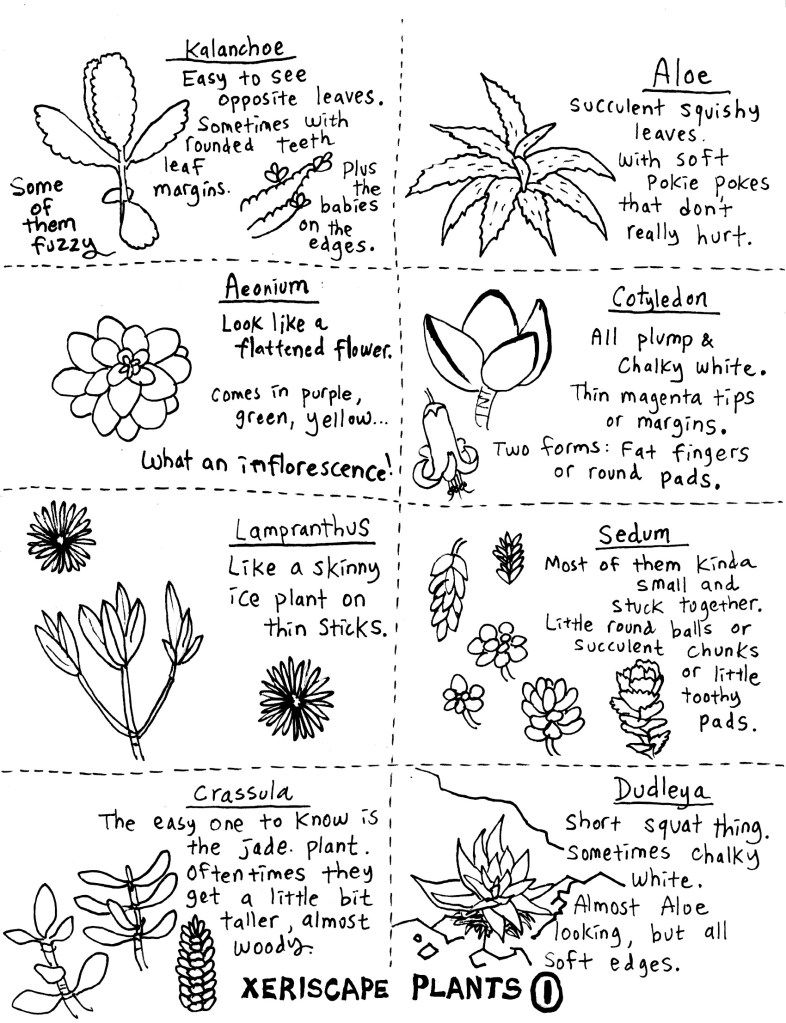 Kalanchoe
Easy to see
opposite leaves.
Sometimes with
rounded teeth
leaf
margins.
Some
of
them
fuzzy
Plus
the
babies
on the
edges.
Aloe
Succulent squishy
leaves.
With soft
Pokie pokes
that don't
really hurt.
Aeonium
Look like a
flattened flower.
Comes in purple,
green, yellow...
What an inflorescence!
Cotyledon
All plump &
Chalky white.
Thin magenta tips
or margins.
Two forms: Fat fingers
or round pads.
Lampranthus
Like a skinny
ice plant on
thin sticks.
Sedum
Most of them kinda
small and
stuck together.
Little round balls or
succulent chunks
or little
toothy
pads.
Crassula
The easy one to know is
the jade. plant.
Oftentimes they
get a little bit
taller, almost
woody.
Dudleya
Short squat thing.
Sometimes chalky
white.
Almost Aloe
looking, but all
soft edges.
XERISCAPE PLANTS 1